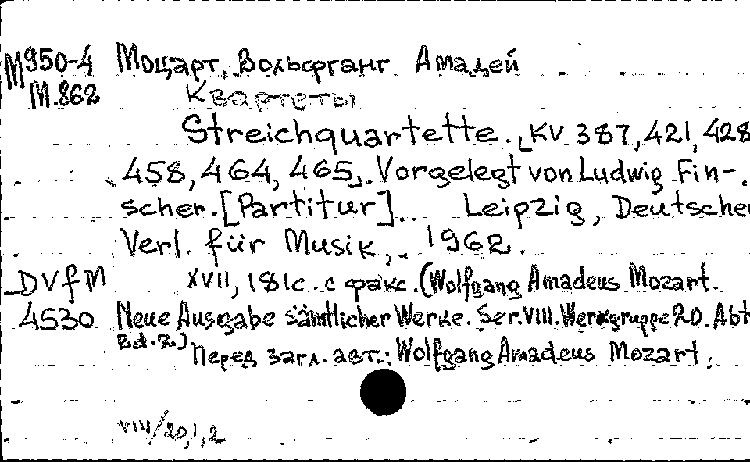 М950-4 Моцарт, Вольфганг Амадей
М.862 Квартеты
Streichquartette. [KV 387, 421, 428
458, 464, 465]. Vorgelegt von Ludwig Fin-
scher. [Partitur]. Leipzig, Deutscher
Verl. für Musik, 1962.
DVfM XVII, 181 с. с факс. (Wolfgang Amadeus Mozart.
4530 Neue Ausgabe sämtlicher Werke. Ser. VIII. Werkgruppe 20. Abt
Bd. 2.)
Перед загл. авт.: Wolfgang Amadeus Mozart.
VIII/20,1,2